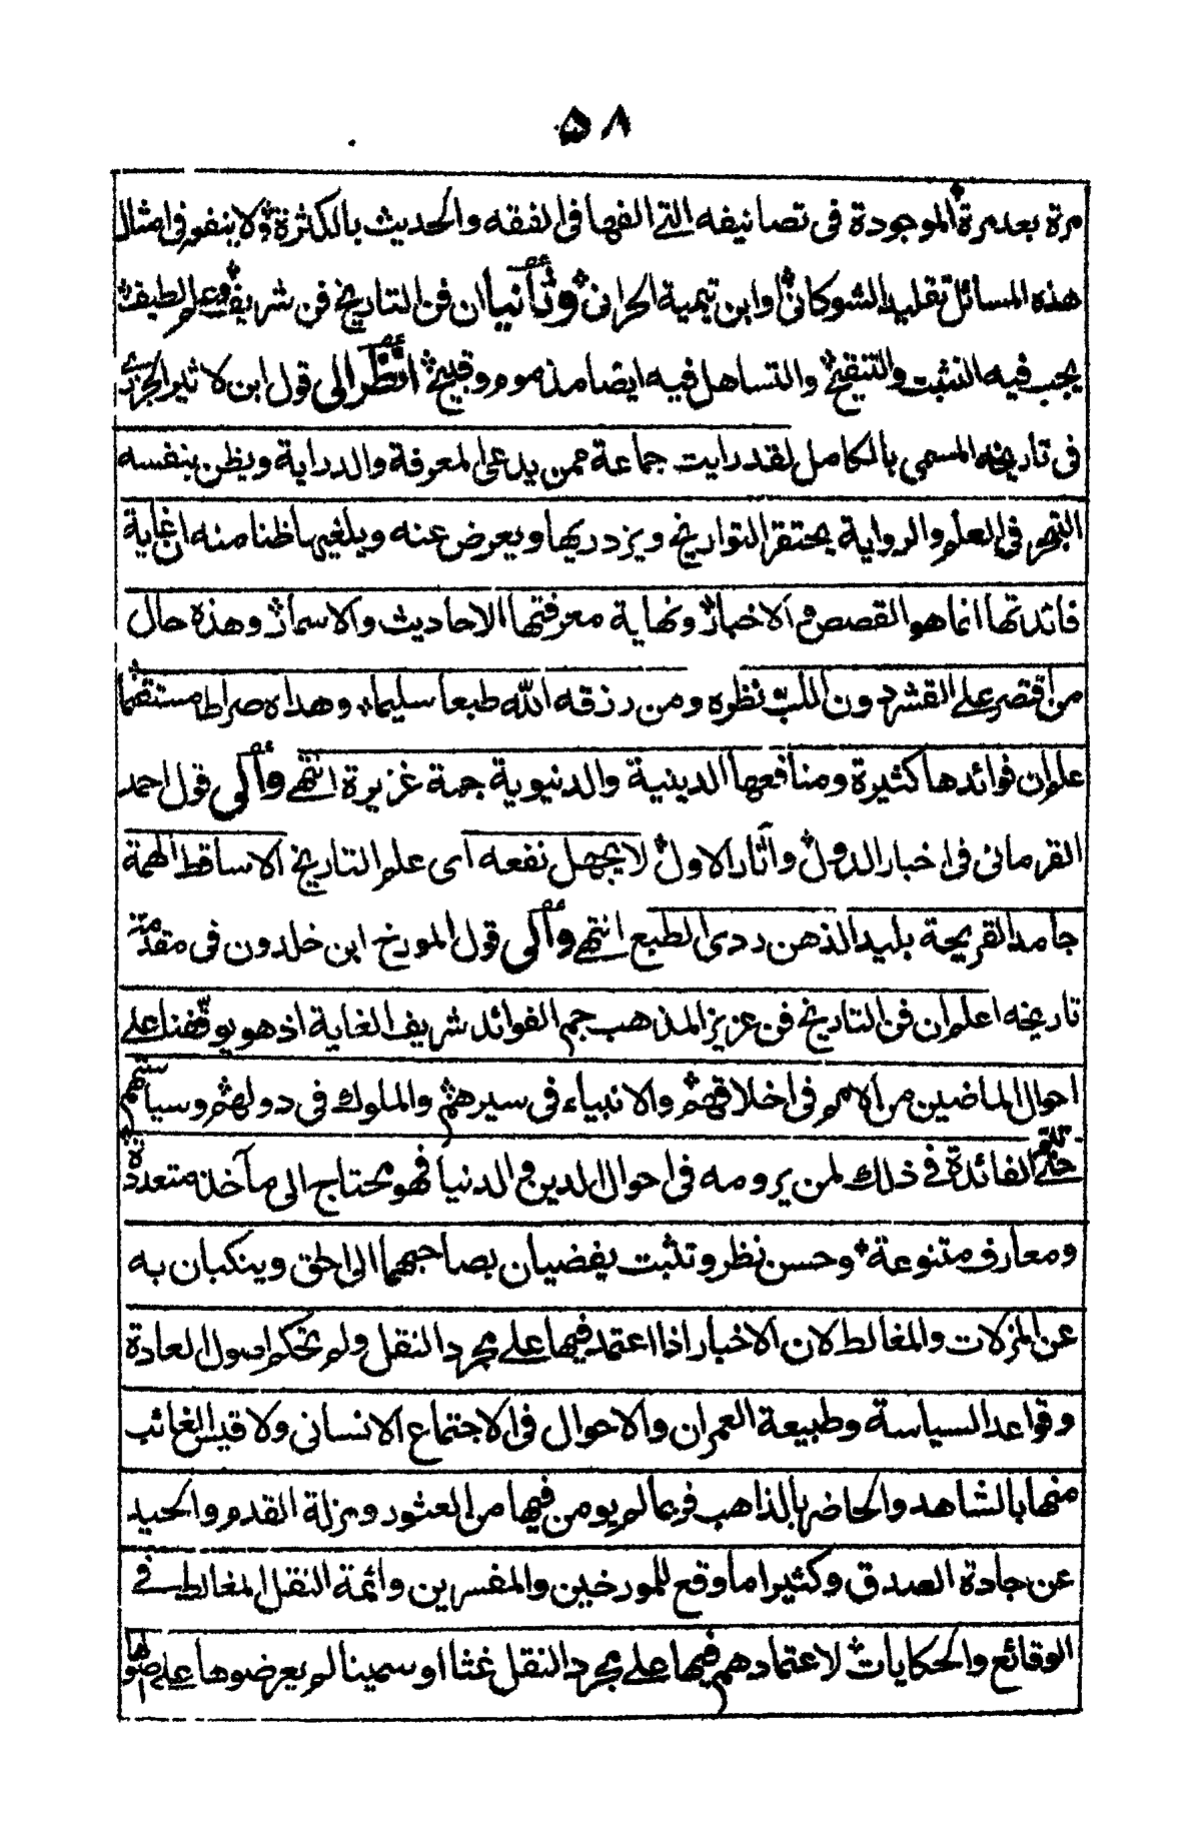 ۵۸
مرة بعد مرة الموجودة فى تصانيفه التى الفها فى الفقه والحديث بالكثرة ولا ينفو فى امثال
هذه المسائل تقليد الشوكانى وابن تيمية الحرانى وثانيا ان فن التاريخ فن شريف وعلم لطيف
يجب فيه التثبت والتنقيح والتساهل فيه ايضا مذموم وقبيح انظر الى قول ابن لاثير الجزرى
فى تاريخه المسمى بالكامل لقد رايت جماعة ممن يدعى المعرفة والدراية ويظن بنفسه
التبحر فى العلم والرواية يحتقر التواريخ ويزدريها ويعرض عنه ويلغيها ظنا منه ان غاية
فائدتها انما هو القصص والاخبار ونهاية معرفتها الاحاديث والاسمار وهذه حال
من اقتصر على القشر دون اللب نظره ومن رزقه الله طبعا سليما وهداه صراطا مستقيما
علم ان فوائدها كثيرة ومنافعها الدينية والدنيوية جمة غزيرة انتهى والى قول احمد
القرمانى فى اخبار الدول وآثار الاول لا يجهل نفعه اى علم التاريخ الا ساقط الهمة
جامد القريحة بليد الذهن ردى الطبع انتهى والى قول المورخ ابن خلدون فى مقدمة
تاريخه اعلم ان فن التاريخ فن عزيز المذهب جم الفوائد شريف الغاية اذ هو يوقفنا على
احوال الماضين من الامم فى اخلاقهم والانبياء فى سيرهم والملوك فى دولهم وسياستهم
حتى تتم الفائدة فى ذلك لمن يرومه فى احوال الدين والدنيا فهو محتاج الى مآخذ متعددة
ومعارف متنوعة وحسن نظر وتثبت يفضيان بصاحبهما الى الحق وينكبان به
عن المزلات والمغالط لان الاخبار اذا اعتمد فيها على مجرد النقل ولم تحكم اصول العادة
وقواعد السياسة وطبيعة العمران والاحوال فى الاجتماع الانسانى ولا قيس الغائب
منها بالشاهد والحاضر بالذاهب فربما لم يومن فيها من العثور ومزلة القدم والحيد
عن جادة الصدق وكثيرا ما وقع للمورخين والمفسرين وائمة النقل المغالط فى
الوقائع والحكايات لاعتمادهم فيها على مجرد النقل غثا او سمينا لم يعرضوها على اصولها